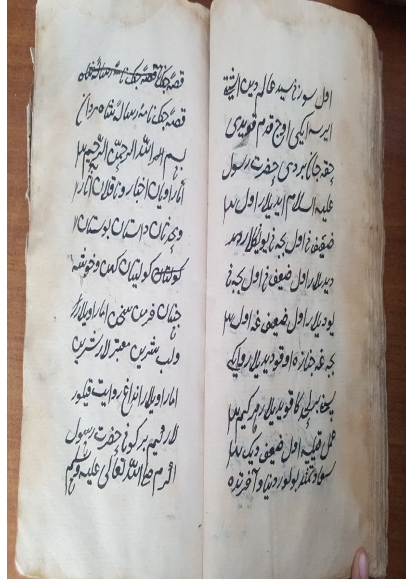 اول سوزنی سید عالم دین
ایرسه ایکی اوچ قدم قویدی
حقه جان بردی حضرت رسول
علیه السلام ایدیلار اول
ضعیف نی اول بچه نی
دیدیلار اول ضعیف نی اول بچه نی
یودیلار اول ضعیف غه اول
بچه غه جنازه اوقودیدیلار و ایکی
قویدیلار هر کیم
عمل قیلسه اول ضعیف دیک
سعادتمند بولور دنیا و آخرتده
قصه جنک نامه رساله شاه
قصه جنک نامه رساله شاه مردان
بسم الله الرحمن الرحیم
اما راویان اخبار و ناقلان آثار
داستان بوستان
کولستان کهن و خوشه
چنان خرمن سخن اما راویلار
و لب شیرین معتبرلار شیرین
اما راویلار انداغ روایت قیلور
لار کیم بر کون حضرت رسول
اکرم صلی الله تعالی علیه وسلم